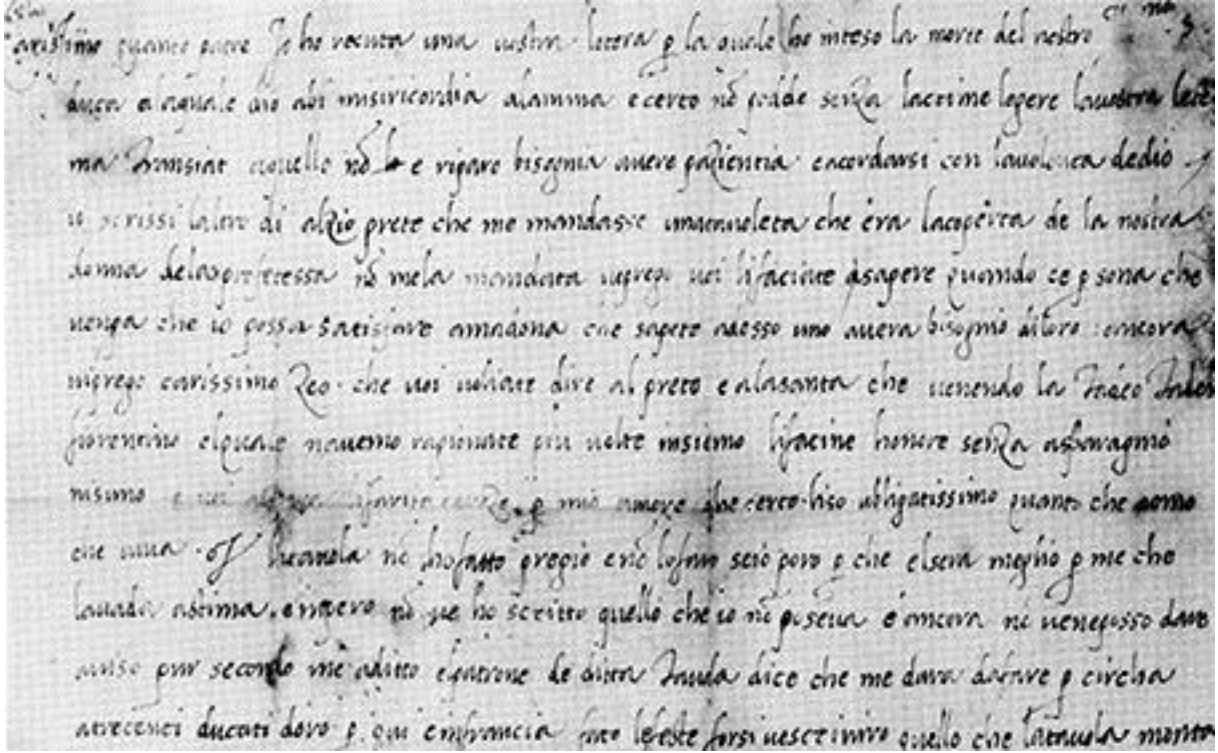 Carissimo quanto patre Io ho receuta una vostra letera p la quale ho inteso la morte del nostro
duca alaquale dio abi misiricordia alanima e certo nō podde senza lacrime legere la vostra
ma transiat aquello nō e riparo bisognia avere pazientia e acordarsi con la volonta de dio
io scrissi laltro di alzio prete che me mandasse una tavoleta che era la coperta de la nostra
donna de la profetessa nō me la mandata ve prego voi li faciate a sapere quando ce p sona che
venga che io possa satisfare a madona che sapete adesso uno avera bisognio di loro ancora
ve prego carissimo Zeo che voi voliate dire al preto e a la santa che venendo la Tadeo Tadei
fiorentino el quale n avemo ragionate piu volte insiemo li facine honore senza asparagnio
nisuno e voi li farite careze p mio amore che certo li so ubligatissimo quanto che a omo
che viva la tavola nō ho fatto pregio e nō lo faro se io poro p che el sera meglio p me che
la vada a stima e inpero nō ve ho scritto quello che io nō poseva e ancora nō ve ne posso dare
aviso pur secondo me a ditto e patrone de ditta tavola dice che me dara da fare p circha
a trecenti ducati d oro p qui e in francia fato le feste forsi ve scrivero quello che la tavola monta